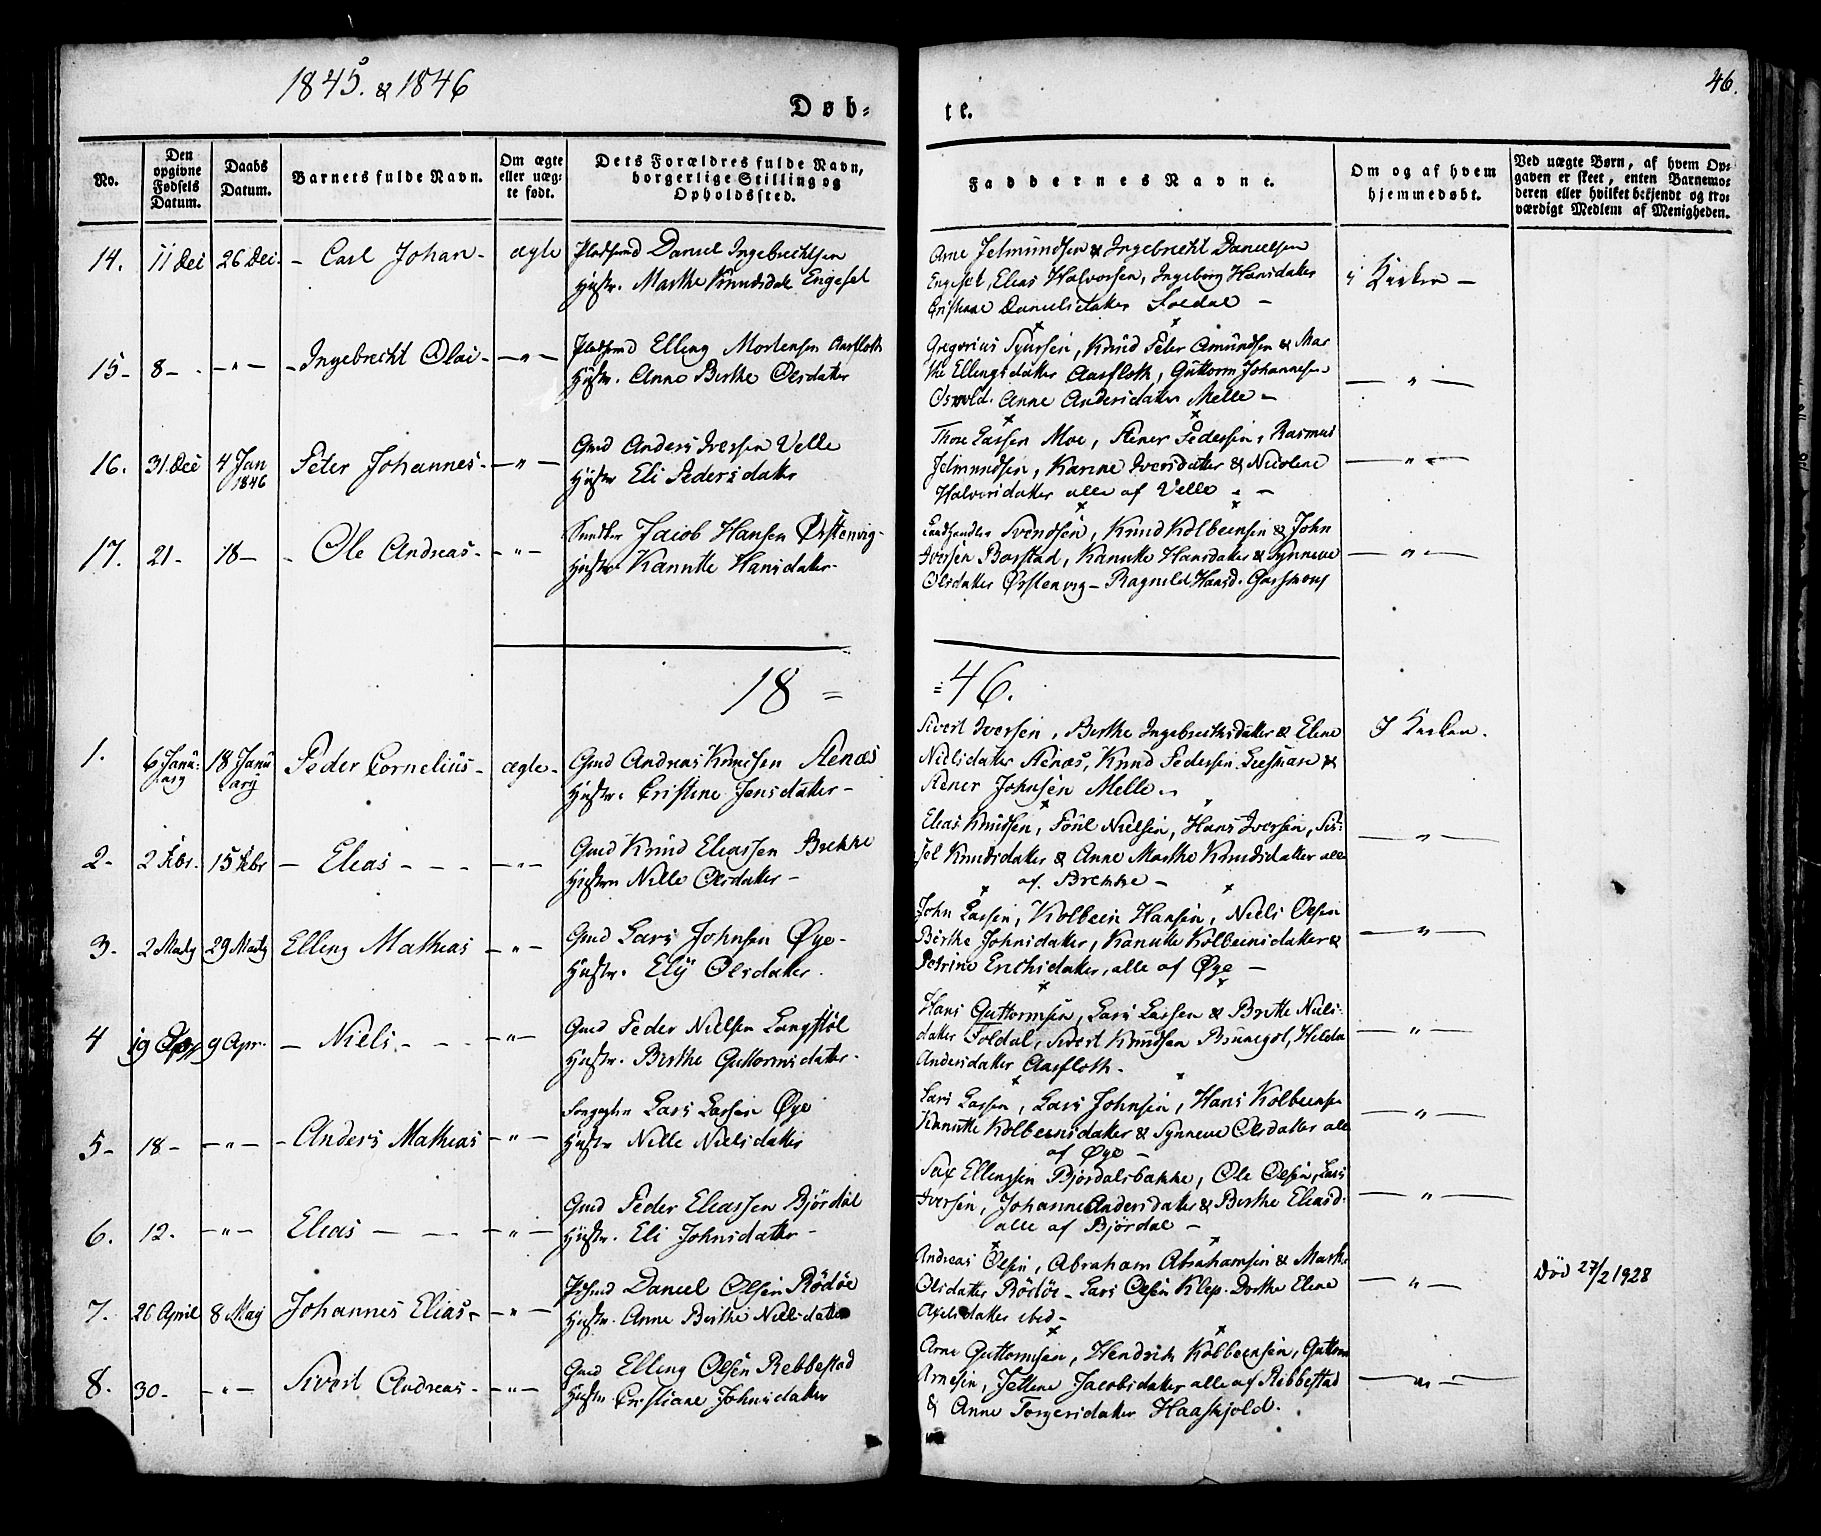 1845. & 1846
46.
Døb-
te.
No.
Den opgivne Fødsels Datum.
Daabs Datum.
Barnets fulde Navn.
Om ægte eller uæg- te født.
Dets Forældres fulde Navn, borgerlige Stilling og Opholdssted.
Faddernes Navne.
Om og af hvem hjemmedøbt.
Ved uægte Børn, af hvem Op- gaven er skeet, enten Barnemo- deren eller hvilket bekjendt og tro- værdigt Medlem af Menigheden.
14. 11 Dec 26 Dec. - Carl Johan - ægte Pladsmd Daniel Ingebrechtsen
Hustr. Marthe Knudsdatr Engeset
Arne Jelmundsen & Ingebrecht Danielsen
Engeset, Elias Halvorsen, Ingeborg Hansdatter
Cristiane Danielsdatter Foldal -
i Kirken -
15 - 8 - . - " - - Ingebrecht Olai - - " - Pladsmd Elling Mortensen Aarfloth
Hustr. Anne Berthe Olsdatter
Gregorius Synesen, Knud Peter Amundsen & Mar
the Ellingsdatter Aasfloth, Guttorm Johannesen
Osvold. Anne Andersdatter Melle -
- " -
16. 31. Dec 4 Jan 1846 Peter Johannes - - " - Gmd Anders Iversen Velle
Hustr Eli Pedersdatter
Thore Larsen Moe, Stener Pedersen, Rasmus
Jelmundsen, Karine Iversdatter & Nicoline
Halvorsdatter alle af Velle -
- " -
17. 21 - 18 - - Ole Andreas - - " - Jacob Hansen Ørstenvig -
Hustr Kanutte Hansdatter -
Landhandler Svendsen, Knud Kolbeensen & John
Iversen Barstad, Kanutte Hansdatter & Synneve
Olsdatter Ørstenvig - Ragnild Haasd.
- " -
18 =
= 46.
1. 6 Janu- ary 18 Janu ary Peder Cornelius - ægte - Gmd Andreas Knudsen Stenæs
Hustr. Cristine Jensdatter -
Sivert Iversen, Berthe Ingebrechtsdatter & Elene
Nielsdatter Stenæs, Knud Pedersen &
Stener Johnsen Melle -
I Kirken.
2 - 2 Febr. 15 Febr - Elias - - - - " - Gmd Knud Eliassen Brekke
Hustru Nille Olsdatter -
Elias Knudsen, Poul Nielsen, Hans Iversen, Sis-
sel Knudsdatter & Anne Marthe Knudsdatter alle
af Brekke -
- " -
3 - 2 Marty 29 Marty Elling Mathias - " - Gmd Lars Johnsen Øye -
Hustr. Ely Olsdatter.
John Larsen, Kolbein Hansen, Niels Olsen
Berthe Johnsdatter, Kanutte Kolbeensdatter &
Petrine Erichsdatter, alle af Øye -
- " -
4 19 9 Apr. - Niels - - - - " - Gmd Peder Nielsen Langstøl
Hustr. Berthe Guttormsdatter -
Hans Guttormsen, Lars Larsen & Britte Niels-
datter Foldal, Sivert Knudsen Brunegot, Hilda
Andersdatter Aasfloth -
- " -
5 - 18 - - " - - Anders Mathias - " - Lars Larsen Øye
Hustr Nille Nielsdatter
Lars Larsen, Lars Johnsen, Hans Kolbeensen
Kanutte Kolbeensdatter & Synneve Olsdatter alle
af Øye -
- " -
6. 12 - - " - Elias - - - - " - Gmd Peder Eliassen Bjørdal
Hustr. Eli Johnsdatter -
Sax Ellingsen Bjørdalsbakke, Ole Olsen, Lars
Iversen, Johanne Andersdatter & Berthe Eliasd.
alle af Bjørdal -
- " -
7. 26 April 8 May Johannes Elias - - " - Plsmd Daniel Olsen Rødøe
Hustr. Anne Berthe Nielsdatter
Andreas Olsen, Abraham Abrahamsen & Marthe
Olsdatter Rødøe - Lars Olsen Klep. Dorthe Elene
Axelsdatter ibid -
- " -
Død 27/2 1928
8. 30 - - " - Sivert Andreas - - " - Gmd Elling Olsen Rebbestad
Hustr Cristiane Johnsdatter
Arne Guttormsen, Hendrik Kolbeensen, Guttorm
Arnesen, Jettine Jacobsdatter alle af Ribbestad
& Anne Torgersdatter Haaskjold.
- " -